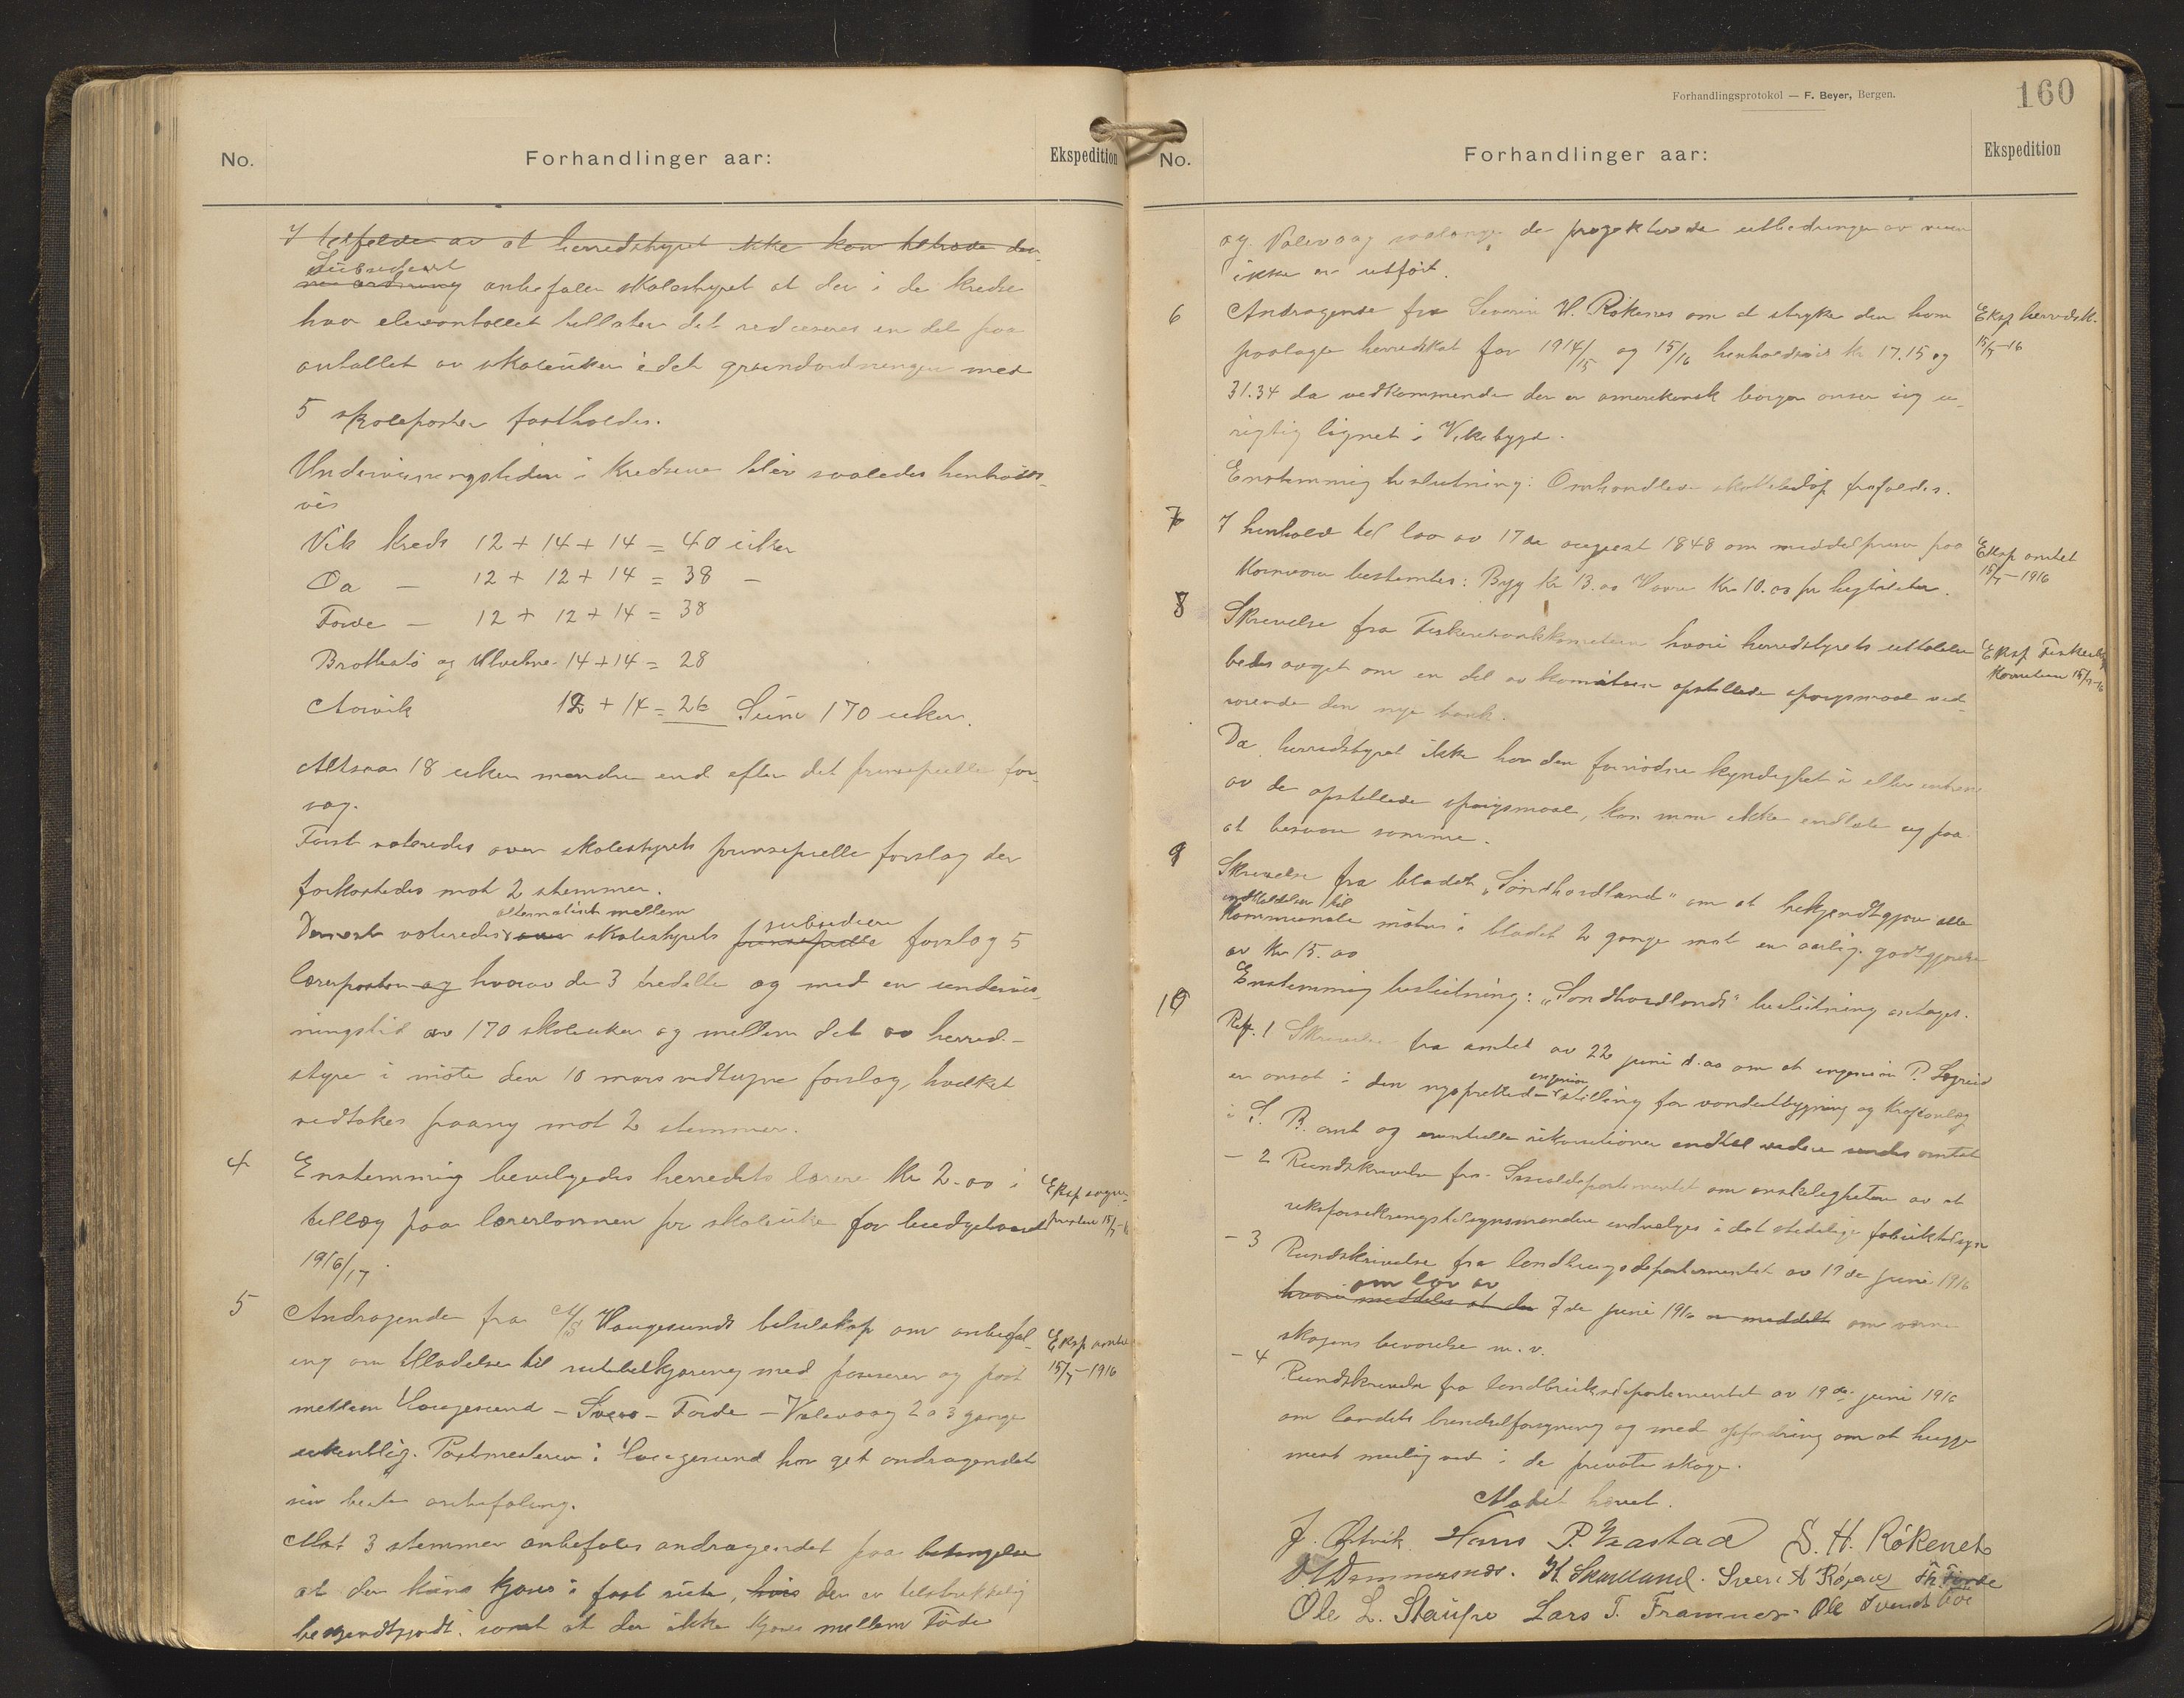 No.
Forhandlinger aar:
Ekspedition
I tilfælde av at herredstyret ikke kan tiltræde den-
Subsidiært
ne ordning anbefaler skolestyret at der i de kredse
hvor elevantallet tillater det reduceres en del paa
antallet av skoleuker i det grundordningen med
5 skoleposter fastholdes.
Undervisningstiden i kredsene blir saaledes henholds-
vis
Vik kreds 12 + 14 + 14 = 40 uker
Oa — 12 + 12 + 14 = 38 —
Førde — 12 + 12 + 14 = 38
Brattestø og Ulvehne. 14 + 14 = 28
Aarvik 12 + 14 = 26 Sum 170 uker.
Altsaa 18 uker mindre end efter det prinsipielle for-
slag.
Først voteredes over skolestyrets prinsipielle forslag der
forkastedes mot 2 stemmer.
alternativt mellem
Dernæst voteredes over skolestyrets prinsipielle subsidiære forslag 5
lærerposter og hvorav de 3 tredelte og med en undervis-
ningstid av 170 skoleuker og mellem det av herred-
styre i møte den 10 mars vedtagne forslag, hvilket
vedtakes paany mot 2 stemmer.
4 Enstemmig bevilgedes herredets lærere kr 2.00 i
tillæg paa lærerlønnen pr skoleuke for budgetaaret
1916/17
Eksp sogne-
presten 15/7-16
5 Andragende fra A/S Haugesunds bilselskap om anbefal-
ing om tilladelse til rutebilkjøring med passerer og post
mellem Haugesund — Sveio — Førde — Valevaag 2 a 3 gange
ukentlig. Postmesteren i Haugesund har git andragendet
sin beste anbefaling.
Eksp amtet
15/7-1916
Mot 3 stemmer anbefales andragendet paa betingelse
at der kun kjøres i fast rute, hvis der er tilstrækkelig
bekjendtgjordt, samt at der ikke kjøres mellem Førde
Forhandlingsprotokol — F. Beyer, Bergen.
160
No.
Forhandlinger aar:
Ekspedition
og Valevaag saalænge de projekterede utbedringer av veien
ikke er utført.
6 Andragende fra Severin H. Røkenes om at stryke den ham
paalagte herredskat for 1914/15 og 15/16 henholdsvis kr 17.15 og
31.34 da vedkommende der er amerikansk borger anser sig u-
rigtig lignet i Vikebygd.
Enstemmig beslutning: Omhandlede skattebeløp frafaldes.
Eksp herredsk.
15/7-16
7 I henhold til lov av 17de august 1848 om middelpriser paa
Kornvarer bestemtes: Byg kr 13.00 Havre Kr 10.00 pr hektoliter.
Eksp amtet
15/7-1916
8 Skrivelse fra Fiskeribankkomiteen hvori herredstyrets uttalelse
bedes avgit om en del av komiteen opstillede spørgsmaal ved-
rørende den nye bank.
Eksp Fiskeribank
Komiteen 15/7-16
Da herredstyret ikke har den fornødne kyndighet i
av de opstillede spørgsmaal, kan man ikke indlate sig paa
at besvare samme.
9 Skrivelse fra bladet „Søndhordland" om at bekjendtgjøre alle
indkaldelser til
kommunale møter i bladet 2 gange mot en aarlig godtgjørelse
av kr 15.00
Enstemmig beslutning: „Søndhordlands" beslutning antages.
10 Ref. 1 Skrivelse fra amtet av 22 juni d.aa om at ingeniør P. Løgreid
er ansat i den nyoprettede ingeniør stilling for vandutbygning og kraftanlæg
i S. B. amt og eventuelle rekvisitioner indtil videre sendes amtet
— 2 Rundskrivelse fra Socialdepartementet om ønskeligheten av at
riksforsikringstilsynsmænden indvælges i det stedelige fabriktilsyn
— 3 Rundskrivelse fra landbrugsdepartementet av 19de juni 1916
om lov av
hvori meddeles at den 7de juni 1916 er meddelt om værne
skogens bevarelse m.v.
— 4 Rundskrivelse fra landbruksdepartementet av 19de juni 1916
om landets brændselforsyning og med opfordring om at hugge
mest mulig ved i de private skoge.
Møtet hævet.
J. Ørvik Hans P. Vaastad S. H. Røkenes
O. Dommersnes. K. Skartland. Sver. A Røkenes Th. Førde
Ole L. Staupe Lars T. Framnes. Ole Ivends Aae